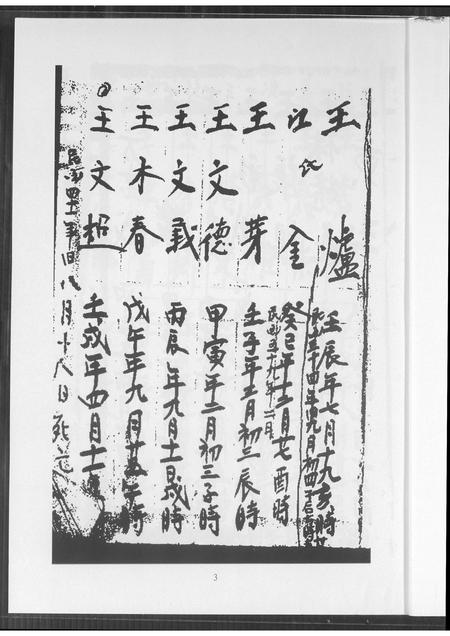 王爐 壬辰年七月十九亥時
江氏金 癸巳年十二月廿七酉時
王芽 壬子年三月初三辰時
王文德 甲寅年二月初三子時
王文載 丙辰年九月十一戌時
王木春 戊午年九月廿五午時
王文超 壬戌年四月十一
民國四十一年旧八月十八日死亡
3